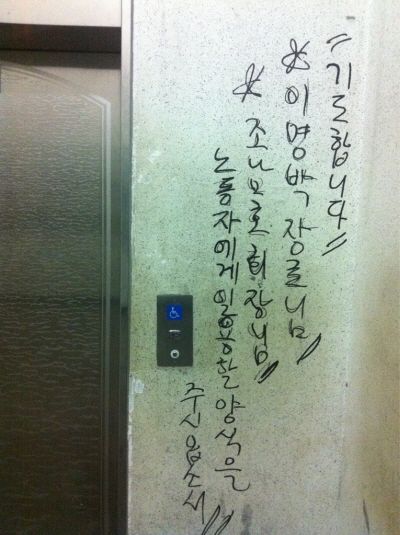 〃기도합니다〃
※이명박 장로님〃
※조남호 회장님〃
노동자에게 일용할 양식을
주시옵소서〃